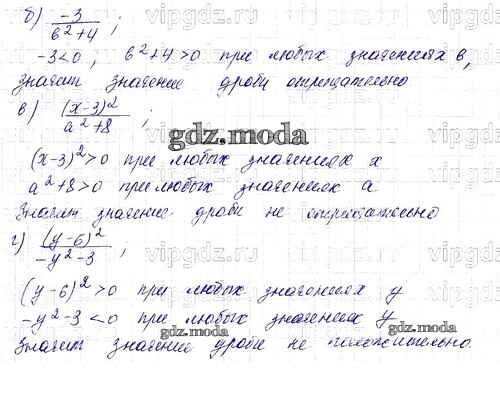 б) -3/(b²+4) ;
-3<0 , b²+4>0 при любых значениях b,
значит значение дроби отрицательно
в) (x-3)²/(a²+8) ;
(x-3)²>0 при любых значениях x
a²+8>0 при любых значениях a
Значит значение дроби не отрицательно
г) (y-6)²/(-y²-3) ;
(y-6)²>0 при любых значениях y
-y²-3<0 при любых значениях y
Значит значение дроби не положительно.
gdz.moda
gdz.moda
gdz.moda
vipgdz.ru
vipgdz.ru
vipgdz.ru
vipgdz.ru